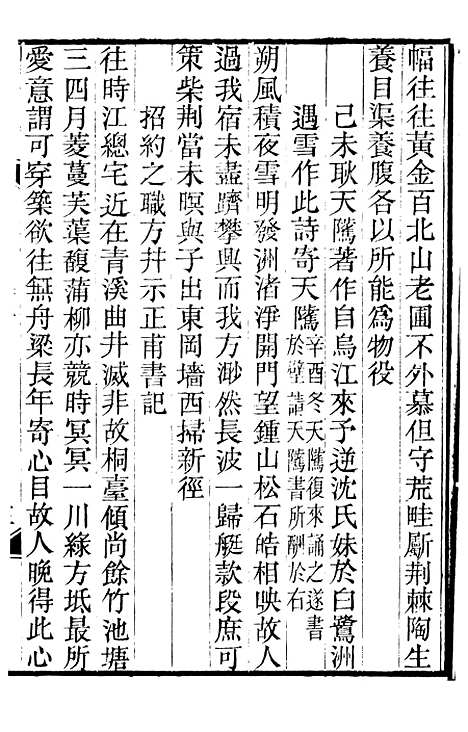 幅往往黃金百北山老圃不外慕但守荒畦斸荆棘陶生
養目渠養腹各以所能爲物役
己未耿天隲著作自烏江來予逆沈氏妹於白鷺洲
遇雪作此詩寄天隲辛酉冬天隲復來誦之遂書
於壁請天隲書所酬於右
朔風積夜雪明發洲渚淨開門望鍾山松石皓相映故人
過我宿未盡躋攀興而我方渺然長波一歸艇款段庶可
策柴荆當未瞑與子出東岡墻西掃新徑
招約之職方幷示正甫書記
往時江總宅近在青溪曲井滅非故桐臺傾尚餘竹池塘
三四月菱蔓芙蕖馥蒲柳亦競時冥冥一川綠方坻最所
愛意謂可穿築欲往無舟梁長年寄心目故人晚得此心